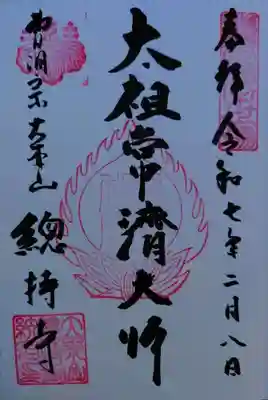 奉拝 令和七年二月八日
太祖常濟大師
曹洞宗大本山
總持寺